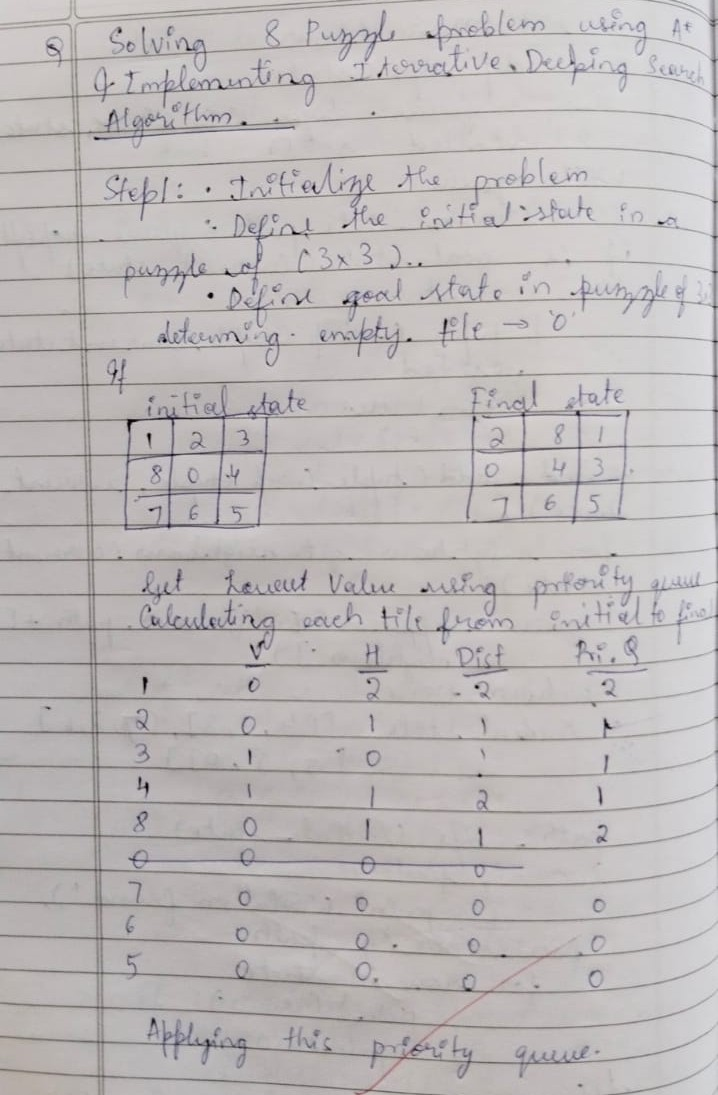 Q Solving 8 Puzzle problem using A*
& Implementing Iterrative Deeping Search
Algorithm.
Step1: • Initialize the problem
• Define the initial state in a
puzzle of (3x3)..
• Define goal state in puzzle of 3x
determing empty tile → '0'
If
initial state Final state
1 2 3 2 8 1
8 0 4 0 4 3
7 6 5 7 6 5
Get Lowest Value using priority queue
Calculating each tile from initial to final
V H Dist Pri. Q
1 0 2 2 2
2 0 1 1 1
3 1 0 1 1
4 1 1 2 1
8 0 1 1 2
0 0 0 0
7 0 0 0 0
6 0 0 0 0
5 0 0 0 0
Applying this priority queue.